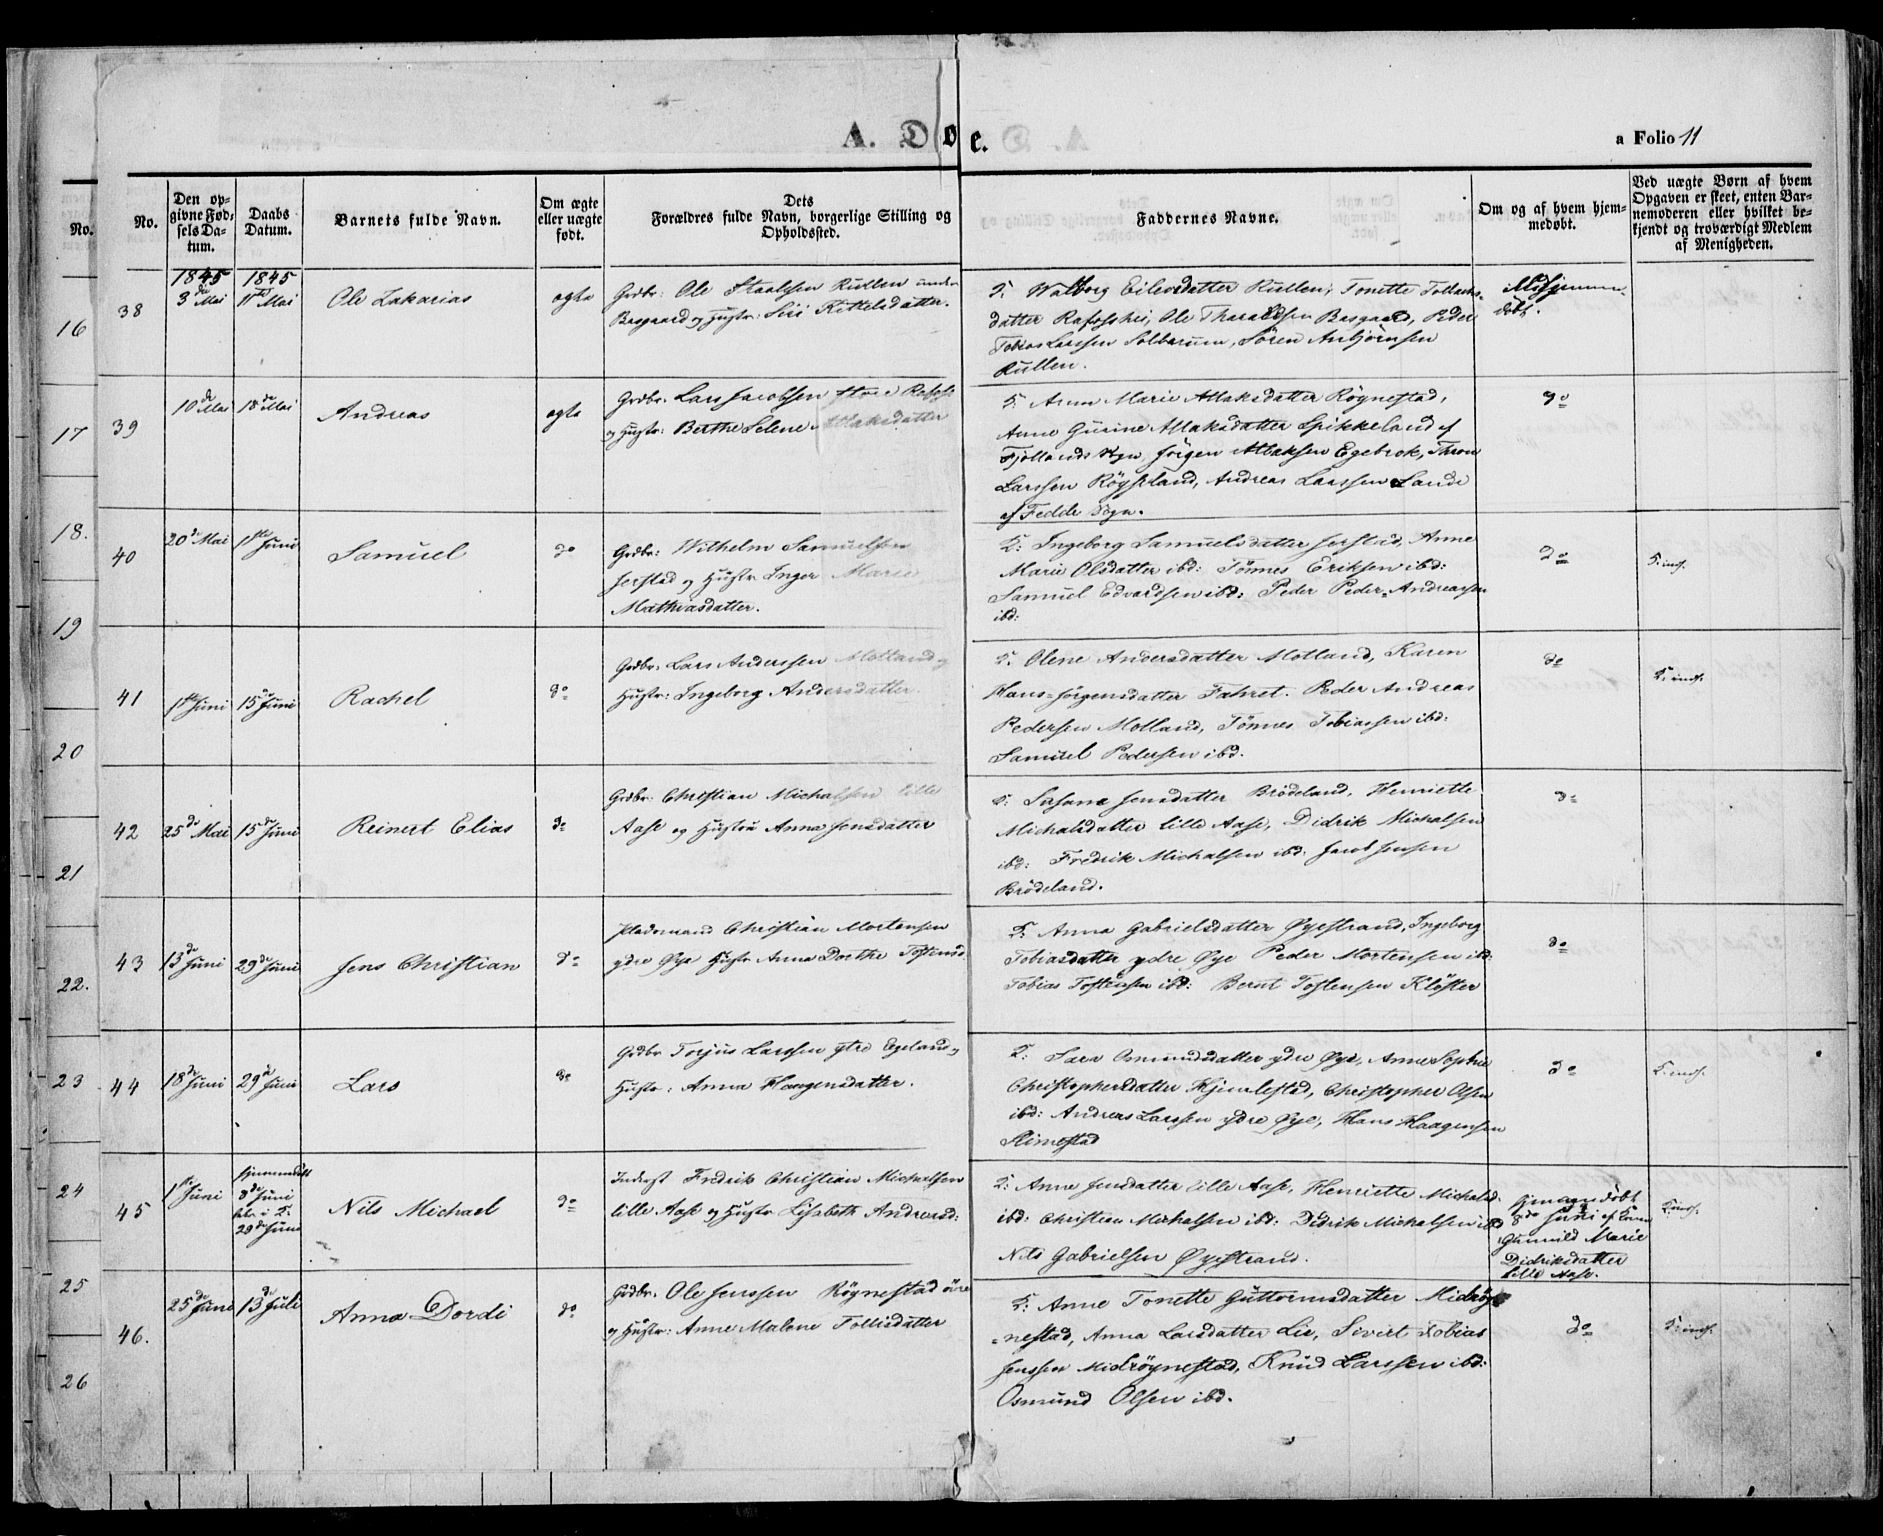 A. Døe.
a Folio 11
No.
No.
Den op-
givne Fød-
sels Da-
tum.
Daabs
Datum.
Barnets fulde Navn.
Om ægte
eller uægte
født.
Dets
Forældres fulde Navn, borgerlige Stilling og
Opholdssted.
Faddernes Navne.
Om og af hvem hjem-
medøbt.
Ved uægte Børn af hvem
Opgaven er skeet, enten Bar-
nemoderen eller hvilket be-
kjendt og troværdigt Medlem
af Menigheden.
16
17
18.
19
20
21
22.
23
24
25
26
38
1845
3die Mai
1845
11te Mai
Ole Zakarias
ægte
Grdbr: Ole Staalsen Kullen under
Basgaard og Hustr: Siri Kittelsdatter.
F. Walborg Eilevsdatter Kullen, Tonette Tollachs-
datter Rafoshei, Ole Tharaldsen Basgaard, Peder
Tobias Larssen Solbarum, Sören Anbjörnsen
Kullen.
39
10de Mai
18de Mai
Andreas
ægte
Grdbr. Lars Jacobsen store Rafoss
og Hustr: Berthe Selene Atlaksdatter
F. Anne Marie Atlaksdatter Röynestad,
Anne Gurine Atlaksdatter Spikkeland af
Fjotlands Sgn, Jörgen Atlaksen Egebrok, Thron
Larssen Röyseland, Andreas Larssen Lande
af Fedde Sogn.
do
40
20de Mai
1ste Juni
Samuel
do
Grdbr: Wilhelm Samuelssen
Jerstad og Hustr Inger Marie
Mathiasdatter.
F. Ingeborg Samuelsdatter Jerstad, Anne
Marie Olsdatter ibd: Tönnes Eriksen ibd:
Samuel Edvardsen ibd: Peder Peder-Andreassen
ibd:
do
41
1ste Juni
15de Juni
Rachel
do
Grdbr: Lars Anderssen Motland og
Hustr: Ingeborg Andersdatter.
F. Olene Andersdatter Motland, Karen
Hans-Jörgensdatter Fahret. Peder Andreas
Pedersen Motland, Tönnes Tobiassen ibd:
Samuel Pedersen ibd.
do
42
25de Mai
15de Juni
Reinert Elias
do
Grdbr. Christian Michalsen lille
Aase og Hustru Anna Jensdatter
F. Susane Jensdatter Brödeland, Henriette
Michalsdatter lille Aase, Didrik Michalsen
ibd: Fredrik Michalsen ibd: Jacob Jensen
Brödeland.
do
43
13de Juni
29de Juni
Jens Christian
do
Pladsmand Christian Mortensen
ydre Øye Hustr Anna Dorthe Tostensd.
F. Anna Gabrielsdatter Øyestrand, Ingeborg
Tobiasdatter ydre Øye Peder Mortensen ibd:
Tobias Tostensen ibd: Bernt Tostensen Klöster
do
44
18de Juni
29de Juni
Lars
do
Grdbr Torjus Larssen ytre Egeland og
Hustr: Anna Haagensdatter.
F. Sara Osmundsdatter ydre Øye, Anne Sophie
Christophersdatter Hjemlestad, Christopher Olsen
ibd: Andreas Larssen ydre Øye, Hans Haagensen
Slimestad
do
45
1ste Juni
hjemmedöbt
8de Juni
29de Juni
Nils Michael
do
Inderst Fredrik Christian Michaelsen
lille Aase og Hustr Lisebeth Andersd:
F. Anne Jensdatter lille Aase, Henriette Michalsd.
ibd: Christian Michalsen ibd: Didrik Michalsen ibd
Nils Gabrielsen Øyestrand.
hjemmedöbt
8de Juni af
Gunnild Marie
Didriksdatter
lille Aase.
46.
25de Juni
13de Juli
Anna Dordi
do
Grdbr. Ole Jenssen Röynestad övre
og Hustr: Anne Malene Tollisdatter
F. Anne Tonette Guttormsdatter Midröy-
nestad, Anna Larsdatter Lie, Sivert Tobias
Jenssen Midröynestad, Knud Larssen ibd:
Osmund Olsen ibd.
do